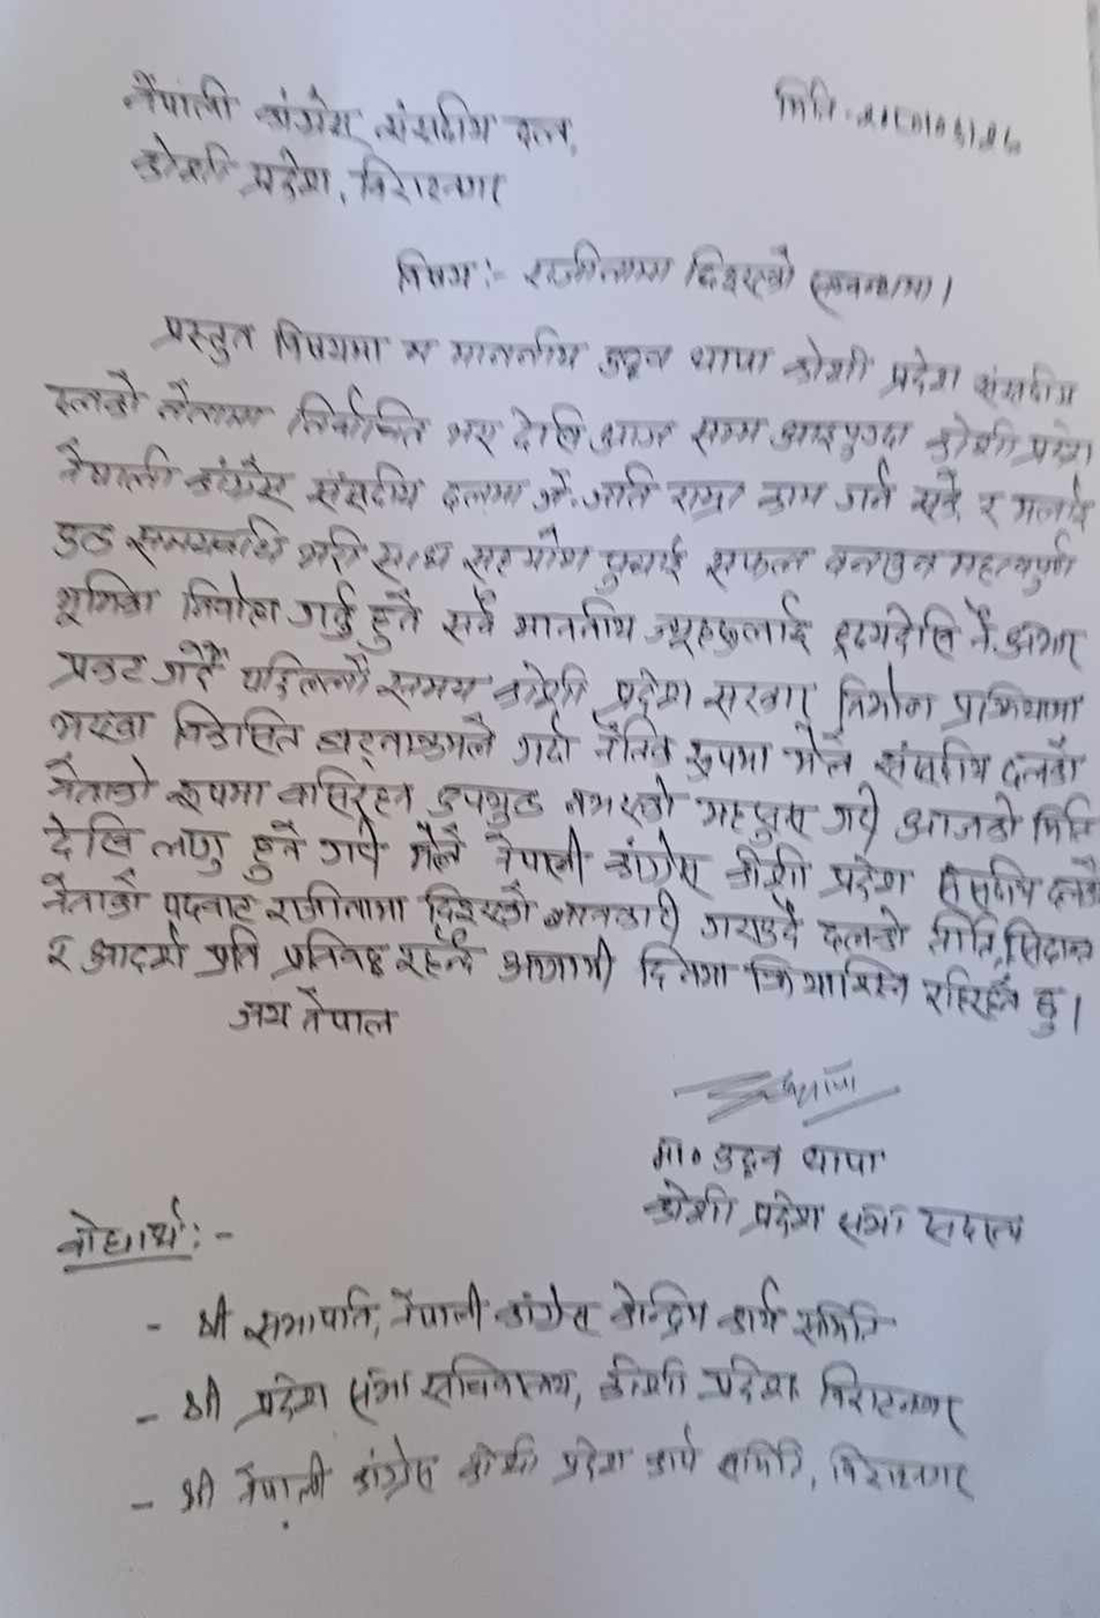 नेपाली कांग्रेस संसदीय दल,
मिति
कोशी प्रदेश, विराटनगर
विषय:- राजीनामा दिइएको सम्बन्धमा।
प्रस्तुत विषयमा म माननीय उद्धव थापा कोशी प्रदेश संसदीय
दलको नेतामा निर्वाचित भए देखि आज सम्म आइपुग्दा कोशी प्रदेश
नेपाली कांग्रेस संसदीय दलमा जे-जति राम्रा काम गर्न सकें र मलाई
समयावधि भरी साथ सहयोग पुर्याई सफल बनाउन महत्वपुर्ण
भूमिका निर्वाह गर्नु हुने सबै माननीय ज्यूहरूलाई हृदयदेखि नै आभार
प्रकट गर्दै पछिल्लो समय कोशी प्रदेश सरकार निर्माण प्रक्रियामा
भएका विकसित घट्नाक्रमले गर्दा नैतिक रूपमा मैले संसदीय दलको
नेताको रूपमा बसिरहन उपयुक्त नभएको महसुस गरी आजको मिति
देखि लागु हुने गरी मैले नेपाली कांग्रेस कोशी प्रदेश संसदीय दलको
नेताको पदबाट राजीनामा दिइएको जानकारी गराउदै दलको निति, सिदान्त
र आदर्श प्रति प्रतिबद्ध रहन्दै आगामी दिनमा क्रियाशिल रहिरहने छु।
जय नेपाल
थापा
मा० उद्धव थापा
कोशी प्रदेश सभा सदस्य
बोधार्थ:-
- श्री सभापति, नेपाली कांग्रेस केन्द्रिय कार्य समिति
- श्री प्रदेश सभा सचिवालय, कोशी प्रदेश विराटनगर
- श्री नेपाली कांग्रेस कोशी प्रदेश कार्य समिति, विराटनगर